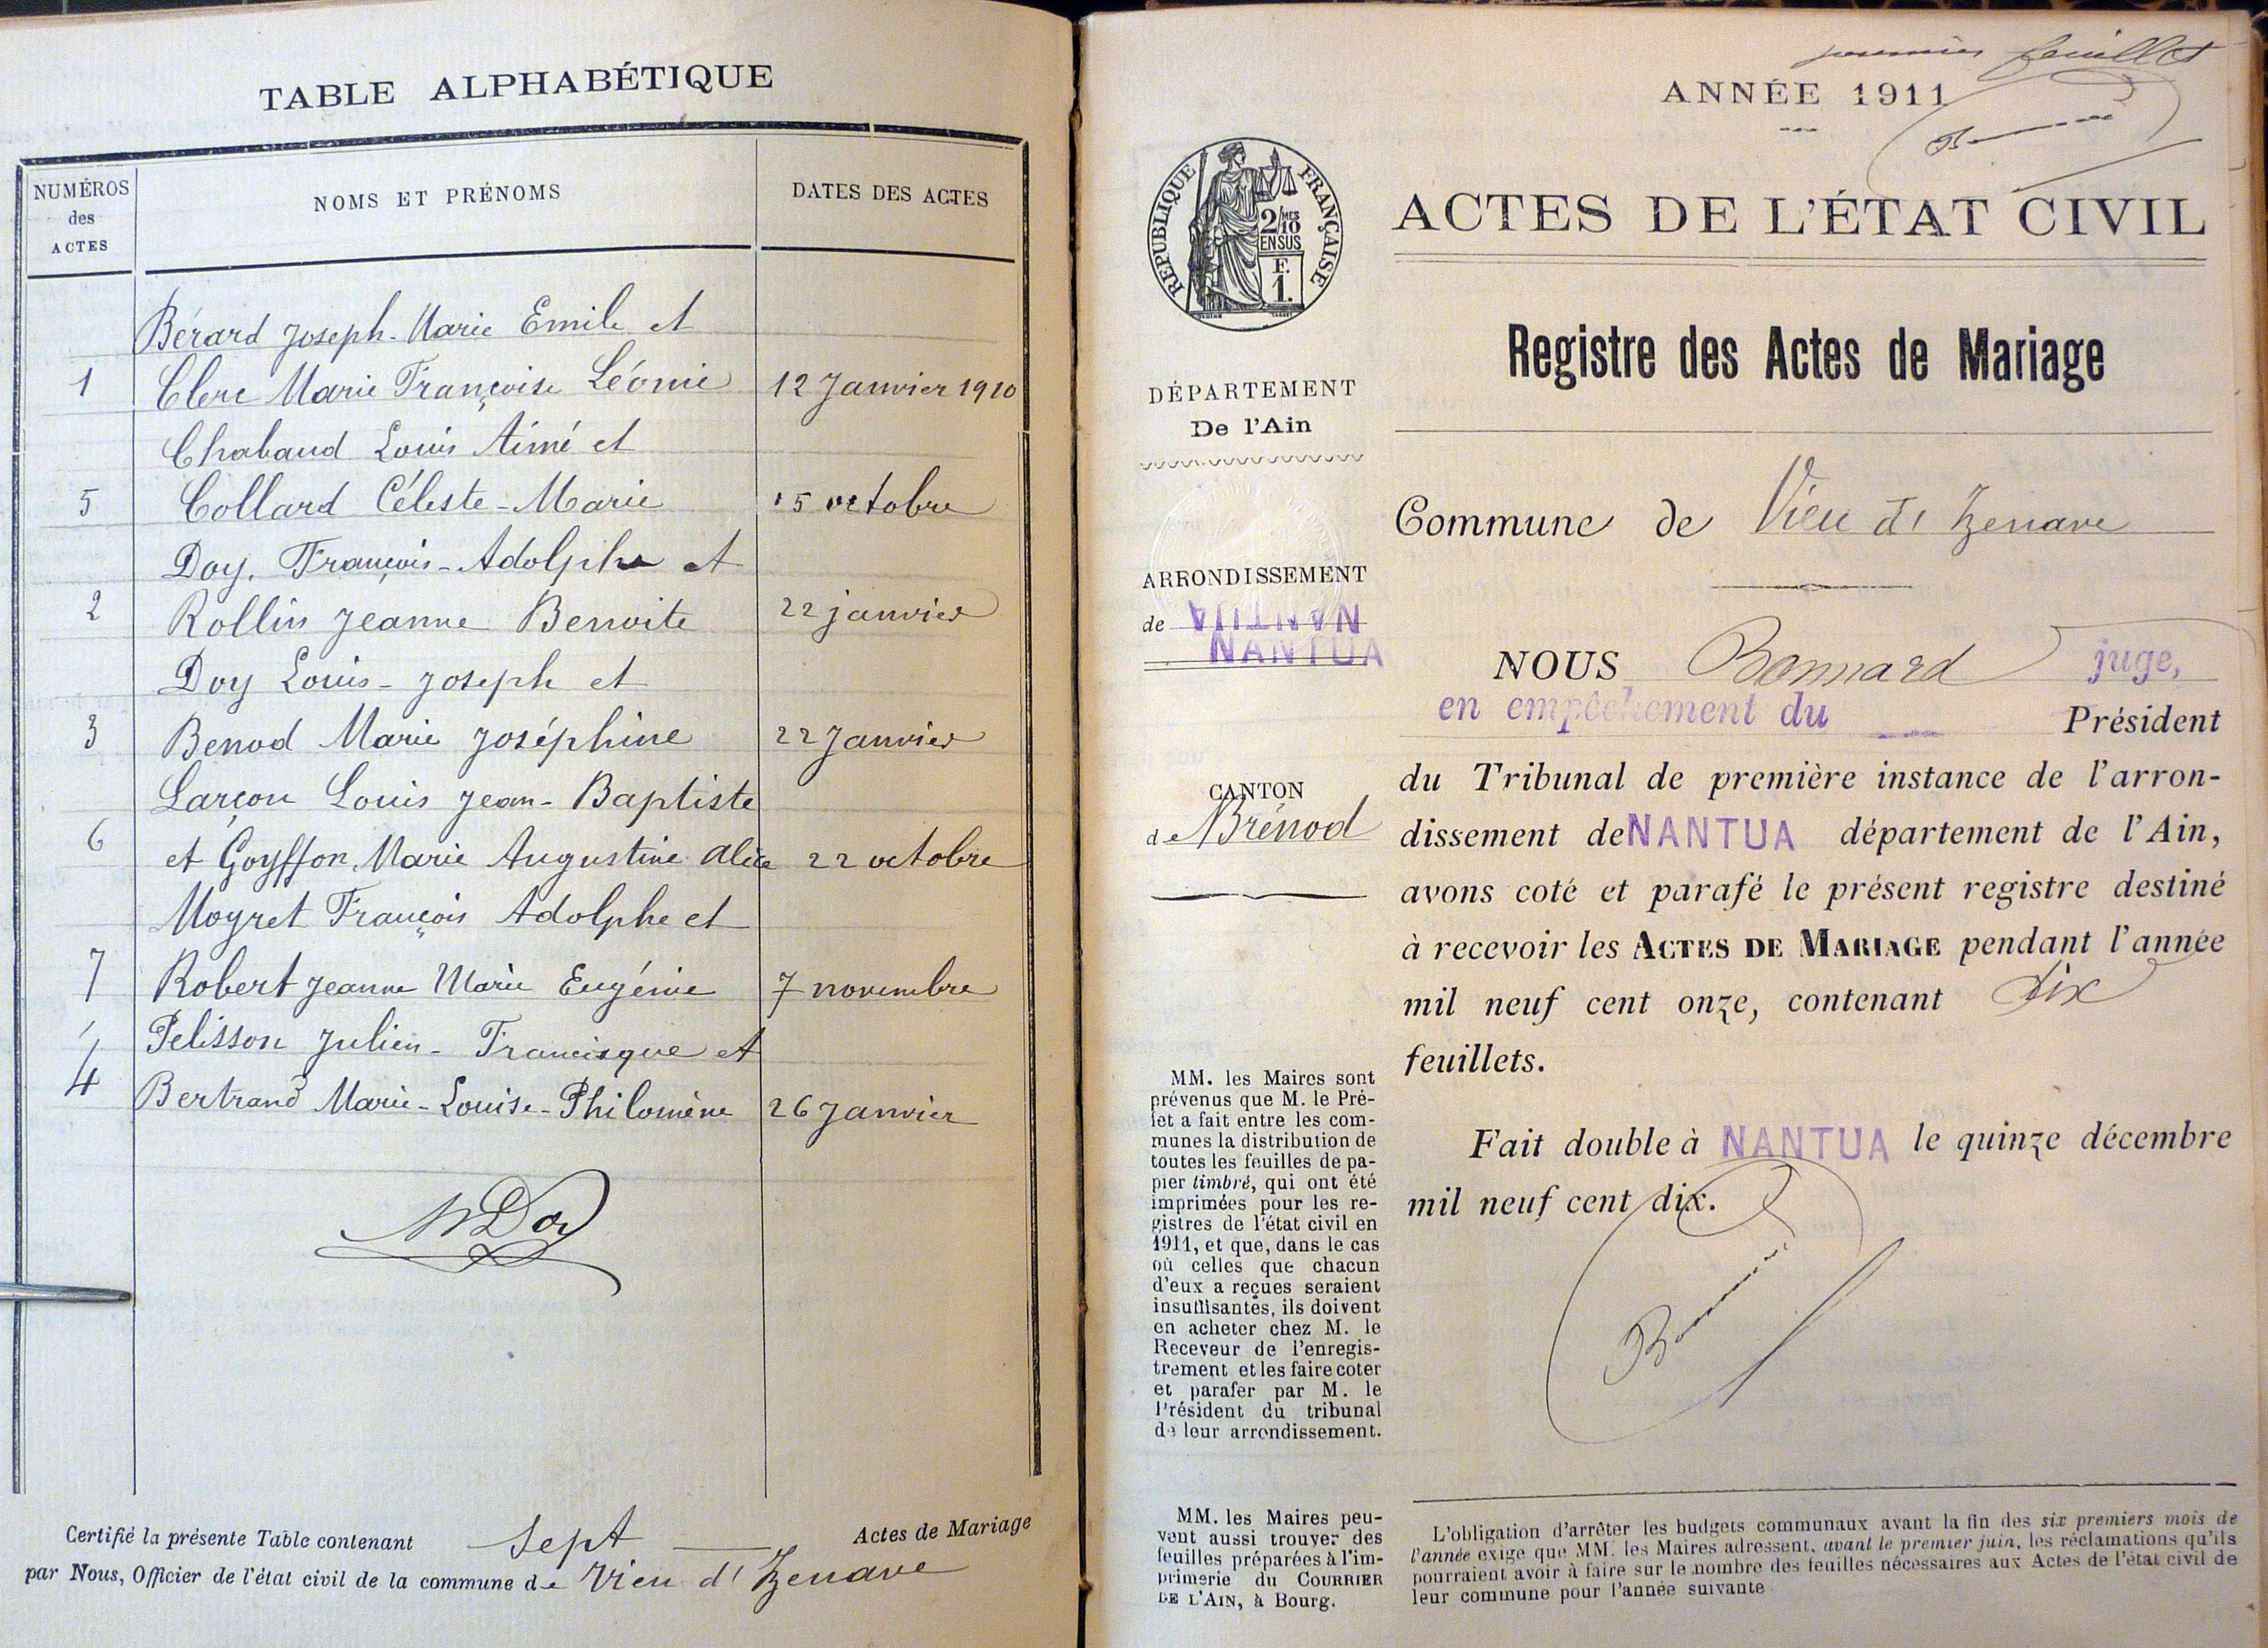 TABLE ALPHABÉTIQUE
NUMÉROS
des
ACTES
NOMS ET PRÉNOMS
DATES DES ACTES
Bérard Joseph-Marie Emile et
1 Clerc Marie Françoise Léonie 12 Janvier 1910
Chabaud Louis Aimé et
5 Collard Céleste-Marie 15 octobre
Doy François-Adolphe et
2 Rollin Jeanne Benoite 22 janvier
Doy Louis-Joseph et
3 Benod Marie Joséphine 22 Janvier
Larçon Louis Jean-Baptiste
6 et Goyffon Marie Augustine Alice 22 octobre
Moyret François Adolphe et
7 Robert Jeanne Marie Eugénie 7 novembre
Pelisson Julien-Francisque et
4 Bertrand Marie-Louise-Philomène 26 Janvier
Doy
Certifié la présente Table contenant Sept Actes de Mariage
par Nous, Officier de l'état civil de la commune de Vieu d'Izenave
premier feuillet
ANNÉE 1911
RÉPUBLIQUE FRANÇAISE
2/10 MES
EN SUS
F.
1.
ACTES DE L'ÉTAT CIVIL
Registre des Actes de Mariage
DÉPARTEMENT
De l'Ain
Commune de Vieu d'Izenave
ARRONDISSEMENT
de NANTUA
NANTUA
CANTON
de Brénod
NOUS Bonnard juge,
en empêchement du Président
du Tribunal de première instance de l'arron-
dissement de NANTUA département de l'Ain,
avons coté et parafé le présent registre destiné
à recevoir les ACTES DE MARIAGE pendant l'année
mil neuf cent onze, contenant dix
feuillets.
Fait double à NANTUA le quinze décembre
mil neuf cent dix.
MM. les Maires sont
prévenus que M. le Pré-
fet a fait entre les com-
munes la distribution de
toutes les feuilles de pa-
pier timbré, qui ont été
imprimées pour les re-
gistres de l'état civil en
1911, et que, dans le cas
où celles que chacun
d'eux a reçues seraient
insuffisantes, ils doivent
en acheter chez M. le
Receveur de l'enregis-
trement et les faire coter
et parafer par M. le
Président du tribunal
de leur arrondissement.
MM. les Maires peu-
vent aussi trouver des
feuilles préparées à l'im-
primerie du COURRIER
DE L'AIN, à Bourg.
L'obligation d'arrêter les budgets communaux avant la fin des six premiers mois de
l'année exige que MM. les Maires adressent, avant le premier juin, les réclamations qu'ils
pourraient avoir à faire sur le nombre des feuilles nécessaires aux Actes de l'état civil de
leur commune pour l'année suivante